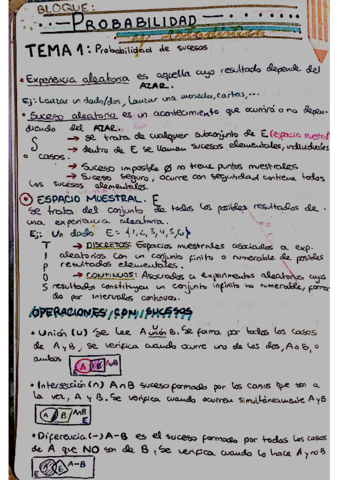 BLOQUE:
PROBABILIDAD
TEMA 1: Probabilidad de sucesos
• Experiencia aleatoria es aquella cuyo resultado depende del
AZAR.
Ej: Lanzar un dado/dos, lanzar una moneda, cartas,...
• Suceso aleatorio es un acontecimiento que ocurrirá o no depen-
diendo del AZAR.
→ se trata de cualquier subconjunto de E (espacio muestral
→ dentro de E se llaman sucesos elementales, individuales
o casos.
→ Suceso imposible Ø no tiene puntos muestrales
→ Suceso seguro, ocurre con seguridad contiene todos
los sucesos elementales.
ESPACIO MUESTRAL. E
Se trata del conjunto de todos los posibles resultados de
una experiencia aleatoria.
Ej: Un dado E= {1,2,3,4,5,6}
TIPOS
→ DISCRETOS: Espacios muestrales asociados a exp.
aleatorios con un conjunto finito o numerable de posibles
resultados elementales.
→ CONTINUOS: Asociados a experimentos aleatorios cuyos
resultados constituyen un conjunto infinito no numerable, forma-
do por intervalos continuos.
OPERACIONES CON SUCESOS
• Unión (U) se lee A unión B. Se forma por todos los casos
de A y B, se verifica cuando ocurre uno de los dos, A o B, o
ambos
A B E
• Intersección (∩) A∩B suceso formado por los casos que son a
la vez, A y B. Se verifica cuando ocurren simultáneamente A y B
A B A∩B E
• Diferencia (-) A-B es el suceso formado por todos los casos
de A que NO son de B, Se verifica cuando lo hace A y no B
A-B E